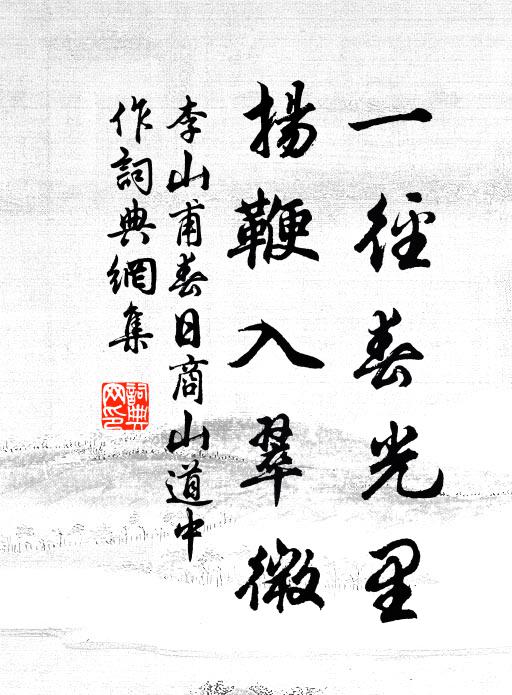 一徑春光里
揚鞭入翠微
李山甫春日商山道中
作詞典網集
詞典
网印